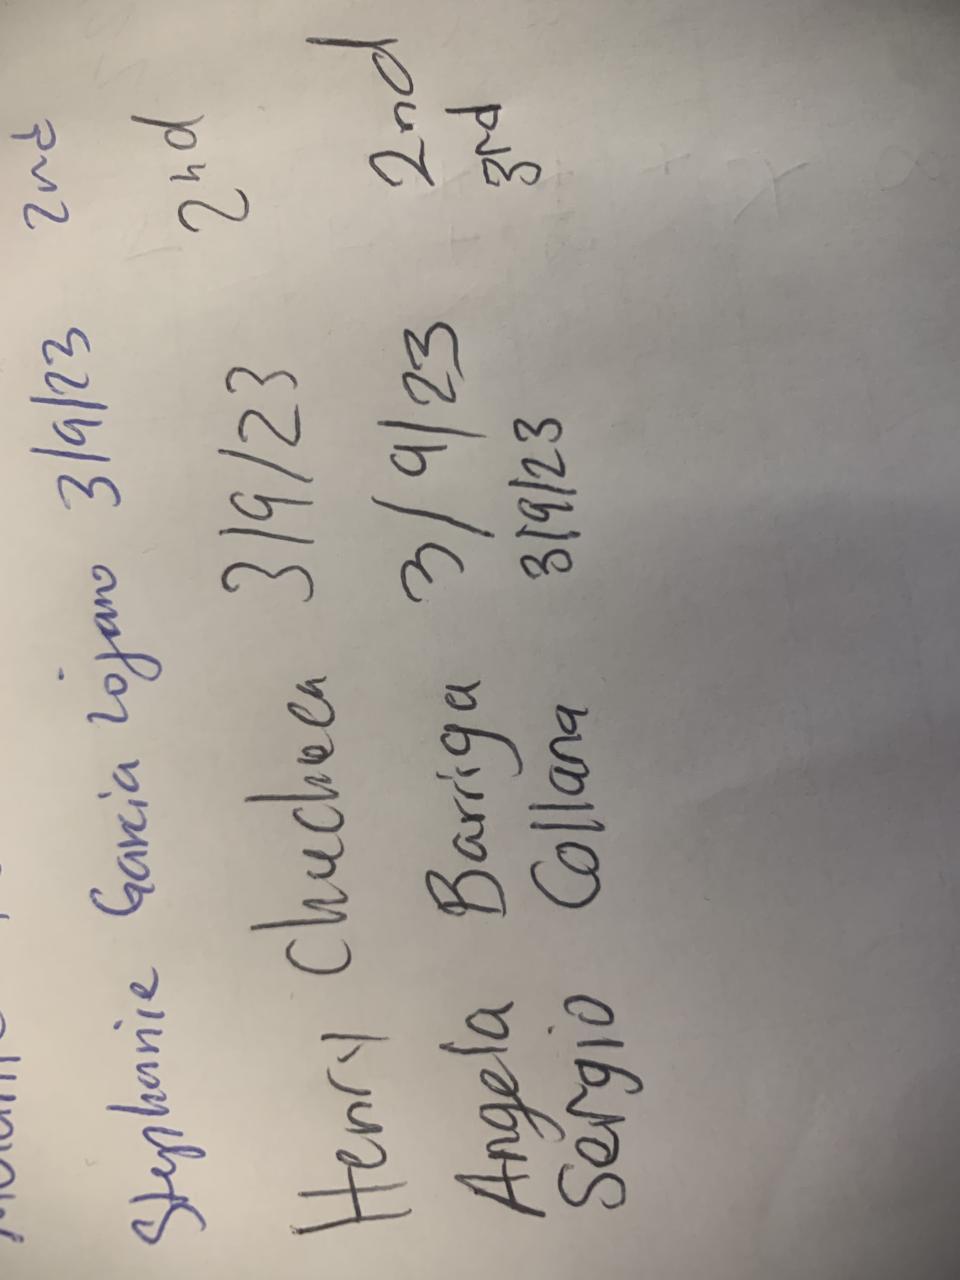 2nd
Stephanie Garcia Lojano 3/9/23 2nd
Henry Chuchca 3/9/23
Angela Barriga 3/9/23 2nd
Sergio Collana 3/9/23 3rd